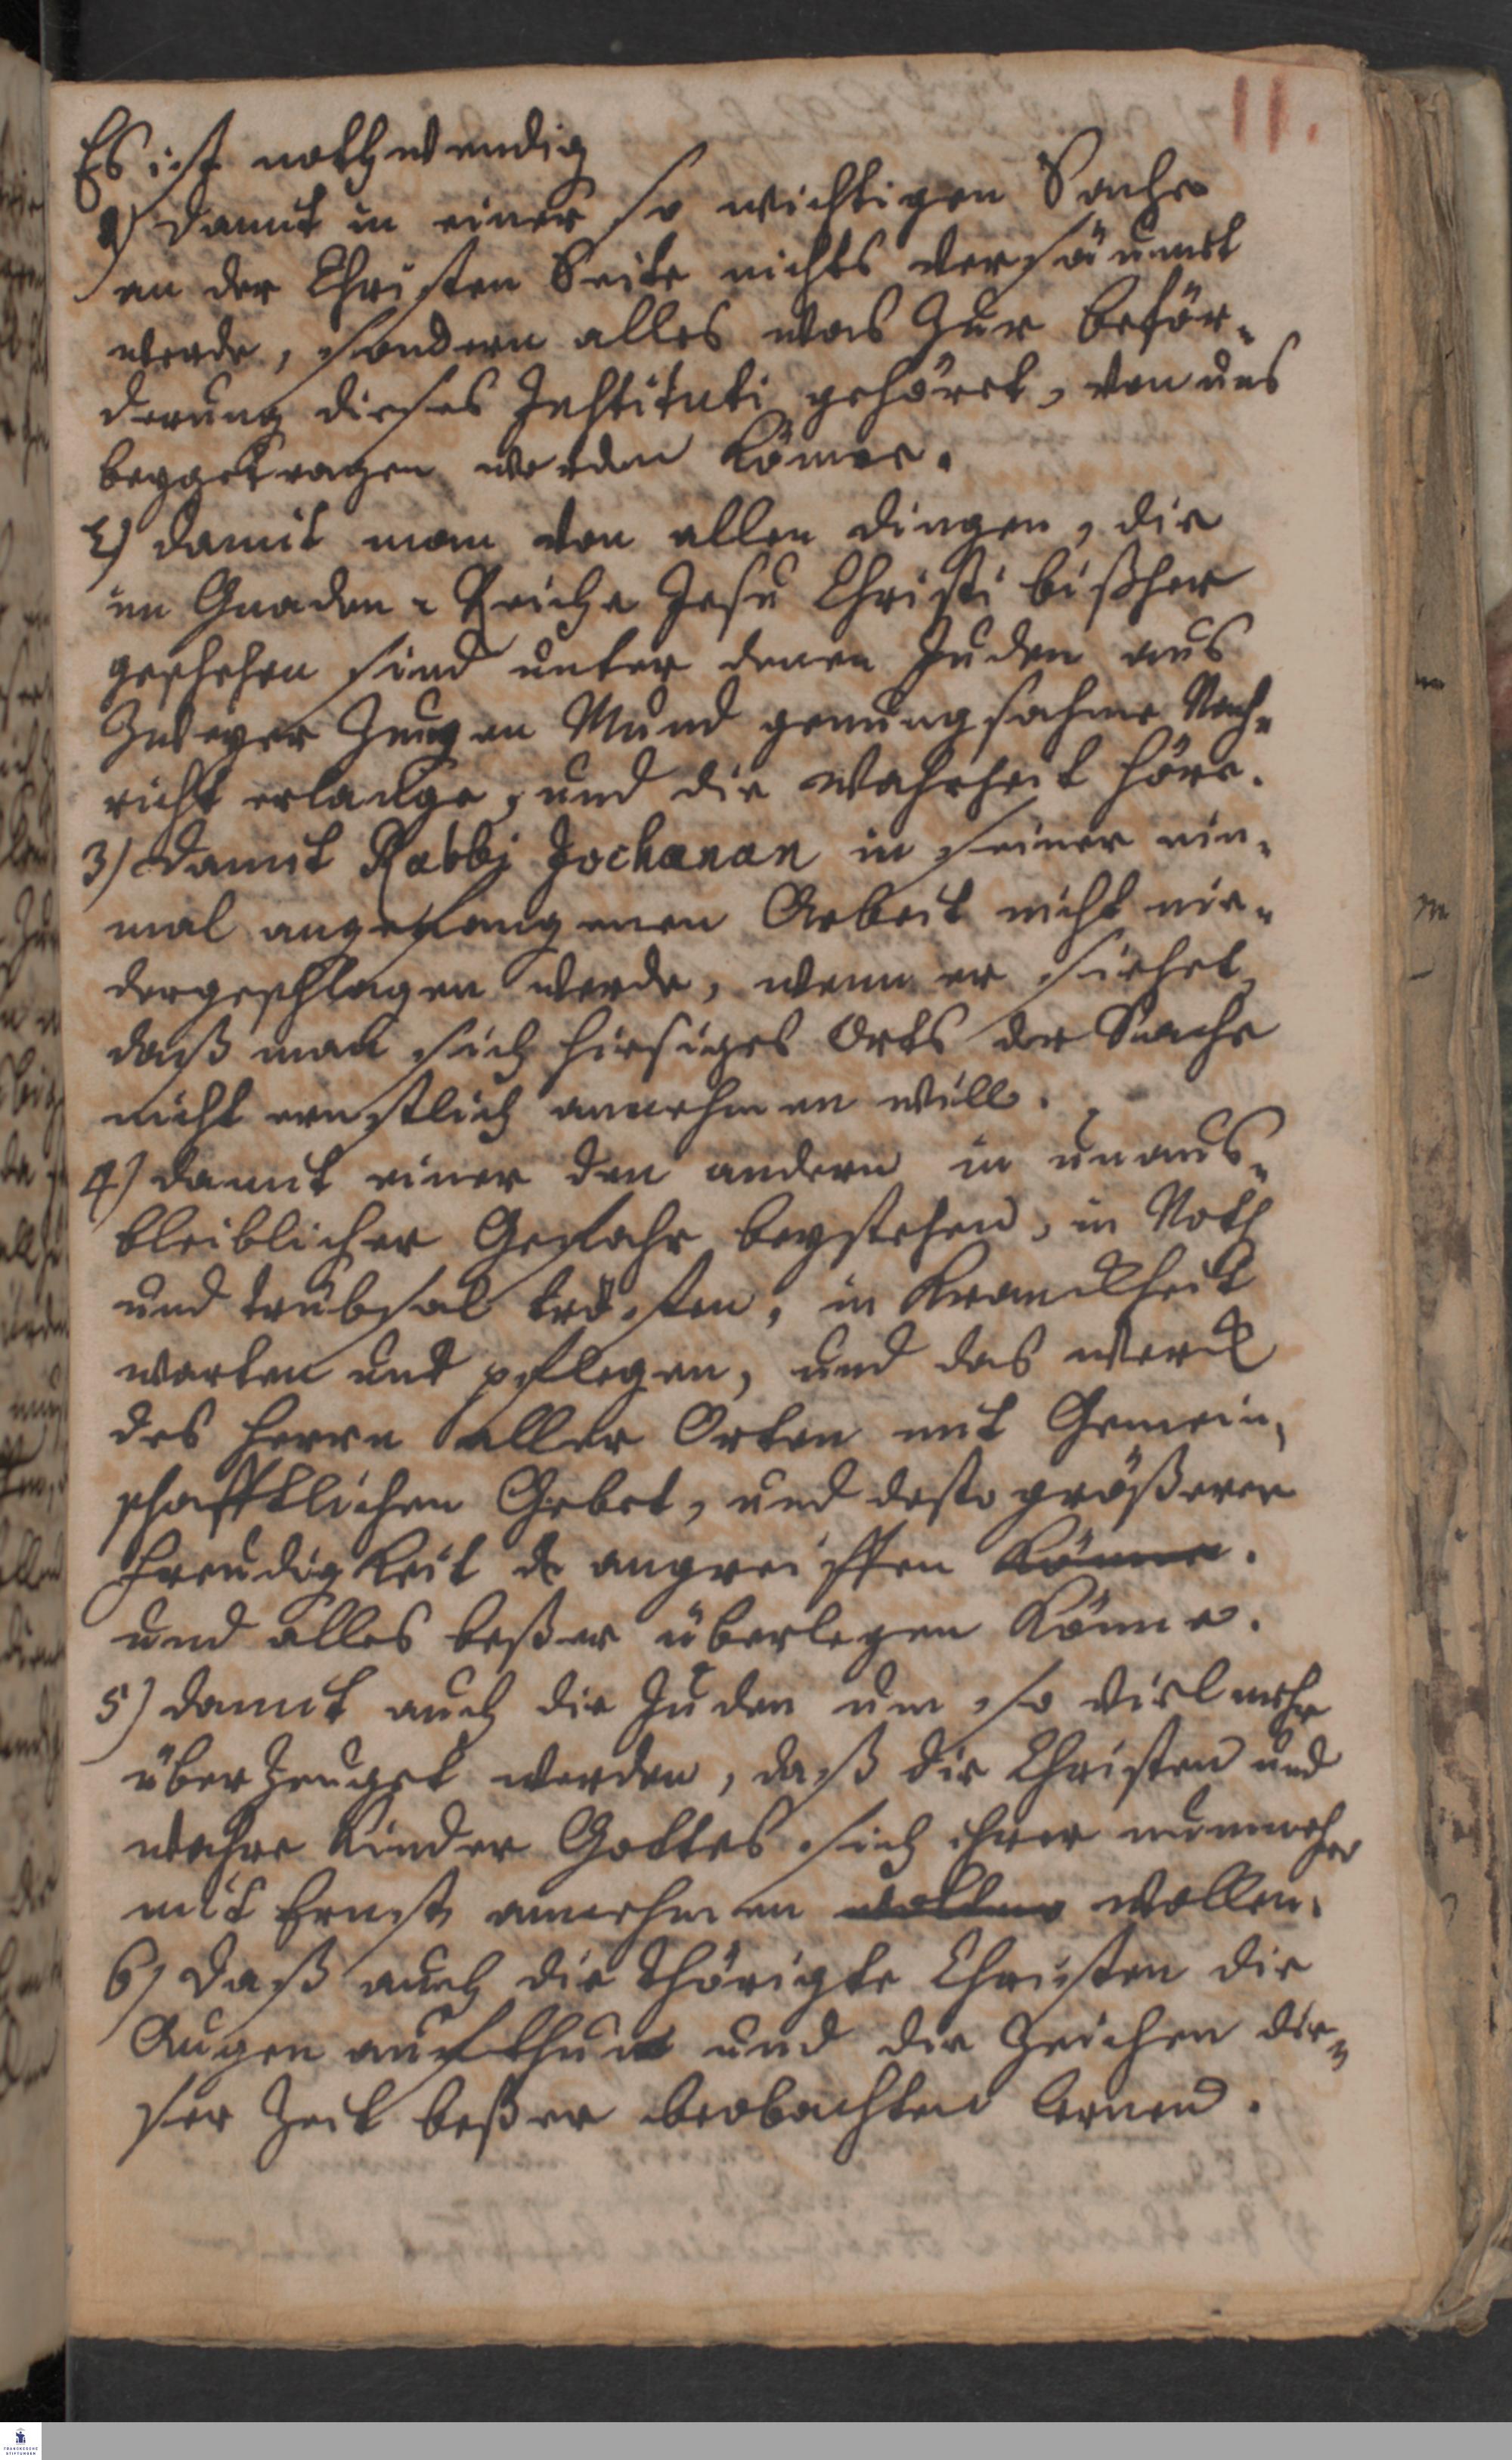 11.
Es ist nothwendig
1) damit in einer so wichtigen Sache
an der Christen Seite nichts versäumet
werde, sondern alles was zur Beför-
derung dieses Instituti gehöret, von uns
beygetragen werden könne.
2) damit man von allen dingen, die
im Gnaden-Reiche Jesu Christi bißher
geschehen sind unter denen Juden aus
zweyer Zeugen Mund genungsahme Nach-
richt erlange, und die Wahrheit höre.
3) damit Rabbi Jochanan in seiner ein-
mal angefangenen Arbeit nicht nie-
dergeschlagen werde, wenn er siehet
daß man sich hiesiges Orts der Sache
nicht ernstlich annehmen will.
4) damit einer den andern in unaus-
bleiblicher Gefahr beystehen, in Noth
und trübsal trösten, in Kranckheit
warten und pflegen, und das Werck
des Herrn aller Orten mit Gemein-
schafftlichen Gebet, und desto größerer
Freudigkeit angreiffen könne.
und alles beßer überlegen könne.
5) damit auch die Juden um so viel mehr
überzeuget werden, daß die Christen und
wahre Kinder Gottes sich ihrer nunmehr
mit Ernst annehmen wollen wollen.
6) daß auch die thörigte Christen die
Augen aufthun und die Zeichen die-
ser Zeit beßer beobachten lernen.
FRANCKESCHE
STIFTUNGEN